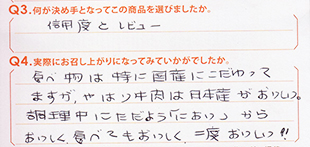 Q3.何が決め手となってこの商品を選びましたか。
信用度とレビュー
Q4.実際にお召し上がりになってみていかがでしたか。
食べ物は特に国産にこだわって
ますが、やはり牛肉は日本産がおいしい。
調理中にただよう「におい」から
おいしく、食べてもおいしく、二度おいしい!!